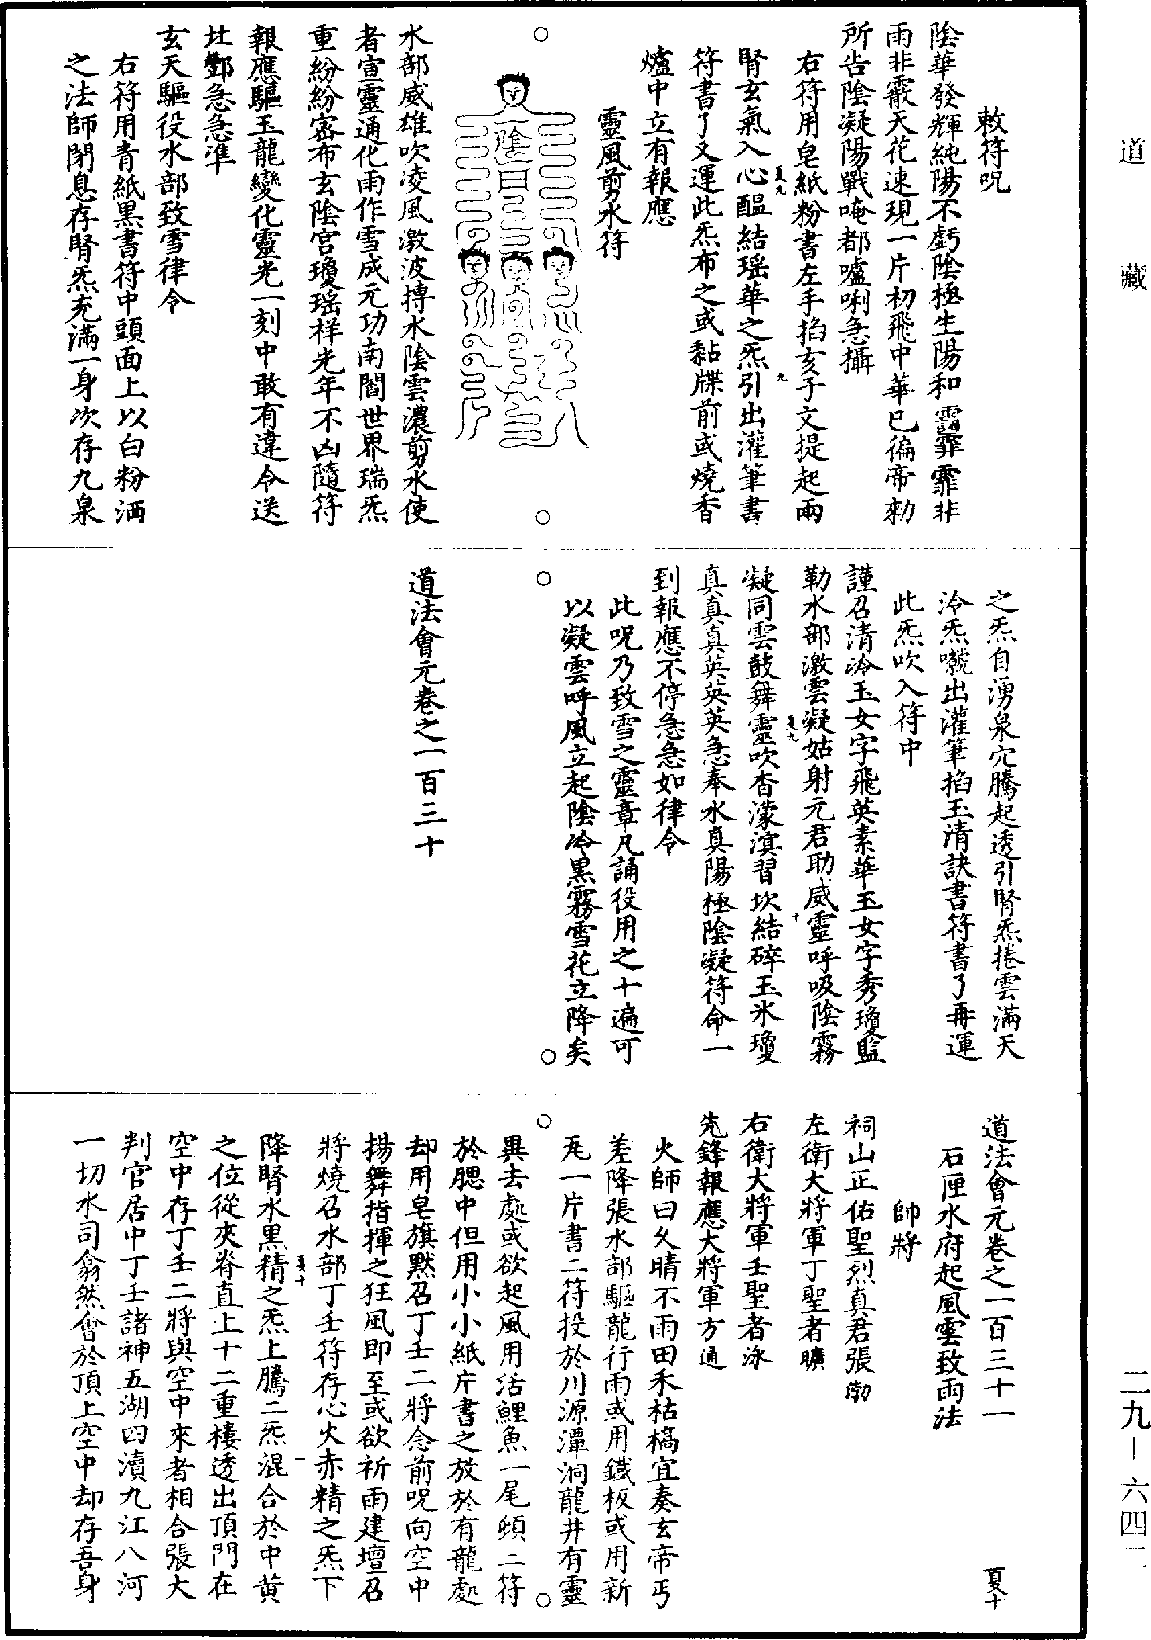 道藏
敕符呪
陰華發輝純陽不虧陰極生陽和霭霏霏非
雨非霰天花速現一片初飛中華已徧帝勑
所告陰凝陽戰唵都嚧唎急攝
右符用皂紙粉書左手掐亥子文提起兩
腎玄氣入心醖結瑶華之炁引出灌筆書
符書了又運此炁布之或黏牒前或燒香
爐中立有報應
靈風剪水符
水部威雄吹凌風激波摶水陰雲濃剪水使
者宣靈通化雨作雪成元功南閻世界瑞炁
重紛紛密布玄陰宫瓊瑶祥光年不凶隨符
報應驅玉龍變化靈光一刻中敢有違令送
北酆急急準
玄天驅役水部致雪律令
右符用青紙黑書符中頭面上以白粉洒
之法師閉息存腎炁充滿一身次存九泉
之炁自湧泉穴騰起透引腎炁捲雲滿天
泠炁噓出灌筆掐玉清訣書符書了再運
此炁吹入符中
謹召清泠玉女字飛英素華玉女字秀瓊監
勒水部激雲凝姑射元君助威靈呼吸陰霧
凝同雲鼓舞靈吹杳濛溟習坎結碎玉氷瓊
真真真英英英急奉水真陽極陰凝符命一
到報應不停急急如律令
此呪乃致雪之靈章凡誦役用之十遍可
以凝雲呼風立起陰冷黑霧雪花立降矣
道法會元卷之一百三十
道法會元卷之一百三十一
夏十
石匣水府起風雲致雨法
帥將
祠山正佑聖烈真君張渤
左衛大將軍丁聖者曠
右衛大將軍壬聖者泳
先鋒報應大將軍方通
火師曰久晴不雨田禾枯槁宜奏玄帝丐
差降張水部驅龍行雨或用鐵板或用新
瓦一片書二符投於川源潭洞龍井有靈
異去處或欲起風用活鯉魚一尾頒二符
於腮中但用小小紙片書之放於有龍處
却用皂旗黙召丁壬二將念前呪向空中
揚舞指揮之狂風即至或欲祈雨建壇召
將燒召水部丁壬符存心火赤精之炁下
降腎水黑精之炁上騰二炁混合於中黄
之位從夾脊直上十二重樓透出頂門在
空中存丁壬二將與空中來者相合張大
判官居中丁壬諸神五湖四瀆九江八河
一切水司翕然會於頂上空中却存吾身
二九—六四二